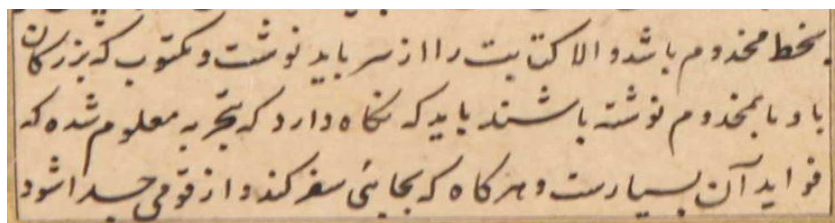 بخط مخدوم باشد والا کتابت را از سر باید نوشت و مکتوب که بزرکان
باو یا بمخدوم نوشته باشند باید که نکاه دارد که بتجربه معلوم شده که
فواید آن بسیارست و هرکاه که بجایئی سفر کند و از قومی جدا شود